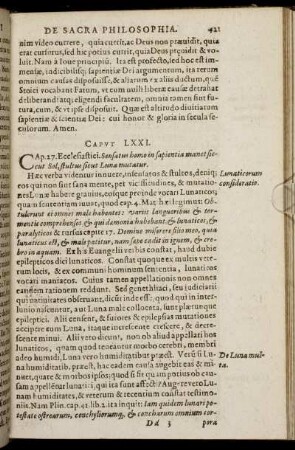 DE SACRA PHILOSOPHIA. 421
nim video currere, quia currit, ac Deus non præuidit, quia
erat cursurus, sed hic potius currit, quia Deus præuidit & vo-
luit. Nam à suo principiū. Ita est profectò, ied hoc est im
mensæ, indicibilisq; sapientiæ Dei argumentum, ita rerum
omnium causas disposuisse, & aliarum ex alijs ductum, quē
Stoici vocabant Fatum, vt cum nulli liberæ causæ detrahat
deliberandi atq; eligendi facultatem, omnia tamen sint fu-
tura, cum, & vt ipse disposuit. O quæ est altitudo diuitiarum
sapientiæ & scientiæ Dei: cui honor & gloria in secula se-
culorum. Amen.
CAPVT LXXI.
CAp. 27. Ecclesiastici. Sensatus homo in sapientia manet si-
cut Sol, stultus sicut Luna mutatur.
Hæc verba videntur innuere, insensatos & stultos, deniq;
eos qui non sint sanæ mentis, pet vicissitudines, & mutatio-
Lunaticorum
nes Lunæ habere grauius, eosque proinde vocari Lunaticos;
consideratio.
quam sententiam adiuuat, quod cap. 4. Mat. hæc legimus: Ob-
tulerunt ei omnes malè habentes varijs languoribus & tor-
mentis comprehensos & qui dæmonia habebant, & lunaticos, &
paralyticos & rursus capite 17. Domine miserere filio meo, quia
lunaticus est, & male patitur, nam sæpe cadit in ignem, & cre
brò in aquam. Ex his Euangelij verbis constat, haud dubiè
epilepticos dici lunaticos. Constat quoque ex multis vete-
rum locis, & ex communi hominum sententia, lunaticos
vocari maniacos. Cuius tamen appellationis non omnes
eandem rationem reddunt. Sed genethliaci, seu iudiciorij
qui vanitates obseruant, dicūt inde esse: quòd qui in inter-
lunio nascuntur, aut Luna malè collocata, sunt plerunque
epileptici. Alij censent, & furores & epilepsias mutationes
accipere cum Luna, itaque increscere, crescere, & decre-
scere, simul cum ea. Alij verò dicunt, non ab aliud appellari hos
lunaticos, quàm quòd habeant caput, cerebrum, membra
adeò humidi, Luna verò humiditatibus præest. Verùm si Lu-
De Luna mul-
na humiditatib. præest, hac eadem causa ægebit eas & mi-
ta.
nuet, quare & morbos ipsos: quòd si sit quam potius ob cau-
sam appellētur lunatici ij, qui ita sunt affecti? Augere verò Lu-
nam humores, & veterum & recentium constat testimo-
nijs. Nam Plin. cap. 41. lib. 2. ita inquit: Iam quidem lunari po-
testate ostrearum, conchyliorumq; & concharum omnium cor-
Dd 3 pora